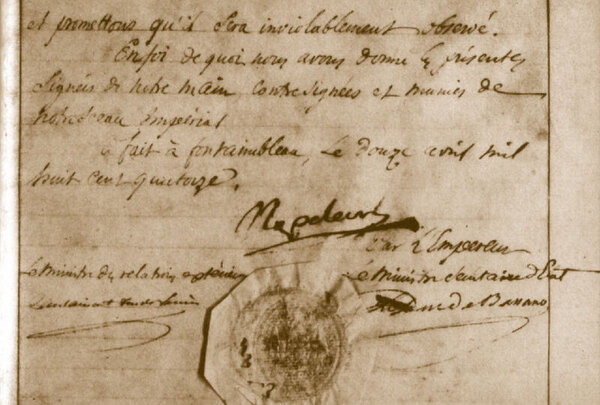 et promettons qu'il sera inviolablement observé.
En foi de quoi nous avons donné les présentes
signées de notre main, contresignées et munies de
notre Sceau Impérial
fait à fontainebleau, Le Douze avril mil
huit cent quatorze.
Napoleon
Par L'Empereur
Le Ministre des relations extérieures
Le Ministre Secretaire d'Etat
Le Duc de Bassano